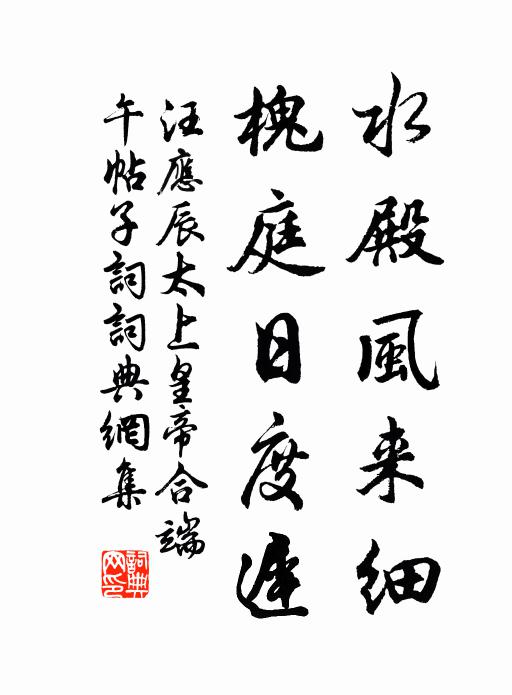 水殿風来細
槐庭日度遲
汪應辰太上皇帝合端
午帖子詞詞典網集
詞典網印